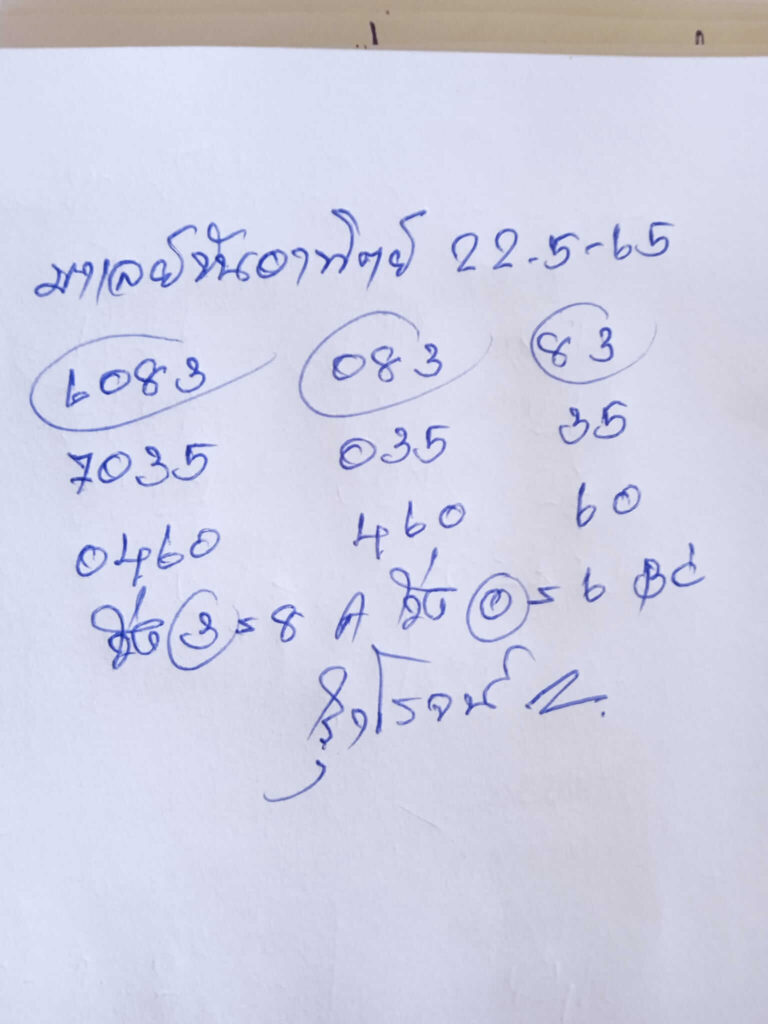 มาเลย์วันอาทิตย์ 22-5-65
6083 083 83
7035 035 35
0460 460 60
วิ่ง 3=8 A วิ่ง 0=6 BC
รุ่งโรจน์